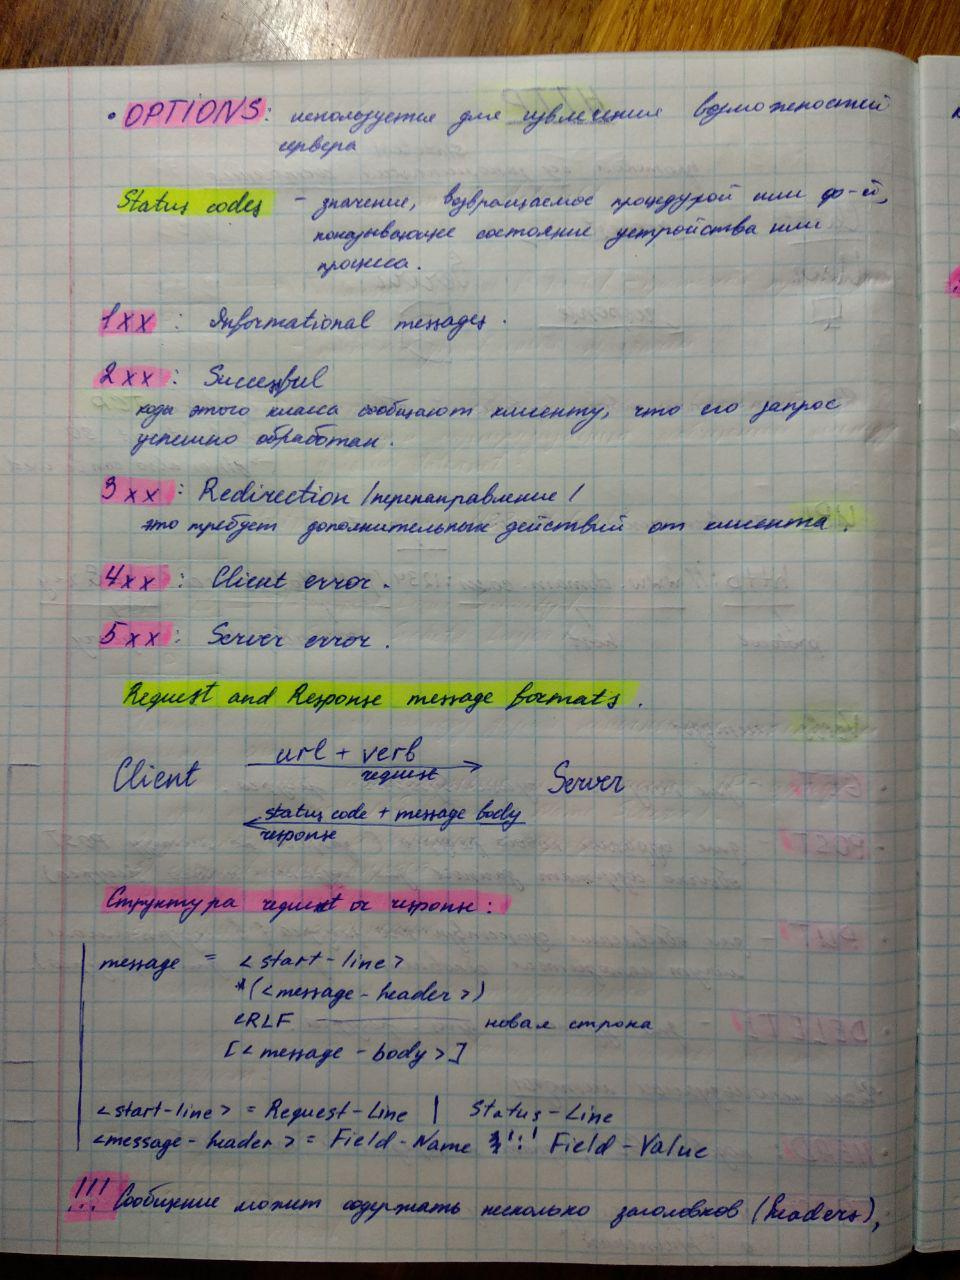 • OPTIONS: используется для извлечения возможностей
сервера
Status codes - значение, возвращаемое процедурой или ф-ей,
показывающее состояние устройства или
процесса.
1xx: Informational messages.
2xx: Successful
коды этого класса сообщают клиенту, что его запрос
успешно обработан.
3xx: Redirection /перенаправление/
это требует дополнительных действий от клиента.
4xx: Client error.
5xx: Server error.
Request and Response message formats.
url + verb
Client Server
request
status code + message body
response
Структура request or response:
message = <start-line>
*(<message-header>)
CRLF новая строка
[<message-body>]
<start-line> = Request-Line | Status-Line
<message-header> = Field-Name ':' Field-Value
!!! Сообщение может содержать несколько заголовков (headers),